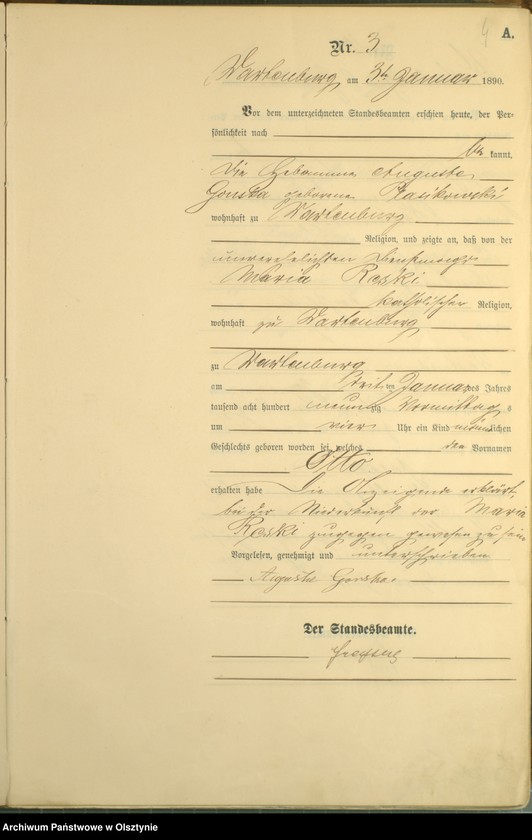 A.
Nr. 3
Wartenburg am 3t Januar 1890.
Vor dem unterzeichneten Standesbeamten erschien heute, der Per-
sönlichkeit nach
be kannt,
die Hebamme Auguste
geborene
wohnhaft zu Wartenburg
Religion, und zeigte an, daß von der
unverehelichten Dienstmagd
Maria Reski
katholischer Religion,
wohnhaft zu Wartenburg
zu Wartenburg
am ten Januar des Jahres
tausend acht hundert neunzig Vormittags
um vier Uhr ein Kind männlichen
Geschlechts geboren worden sei, welches den Vornamen
Otto
erhalten habe Die Anzeigende erklärt
bei der Niederkunft der Maria
Reski zugegen gewesen zu sein
Vorgelesen, genehmigt und unterschrieben
Auguste
Der Standesbeamte.
Archiwum Państwowe w Olsztynie